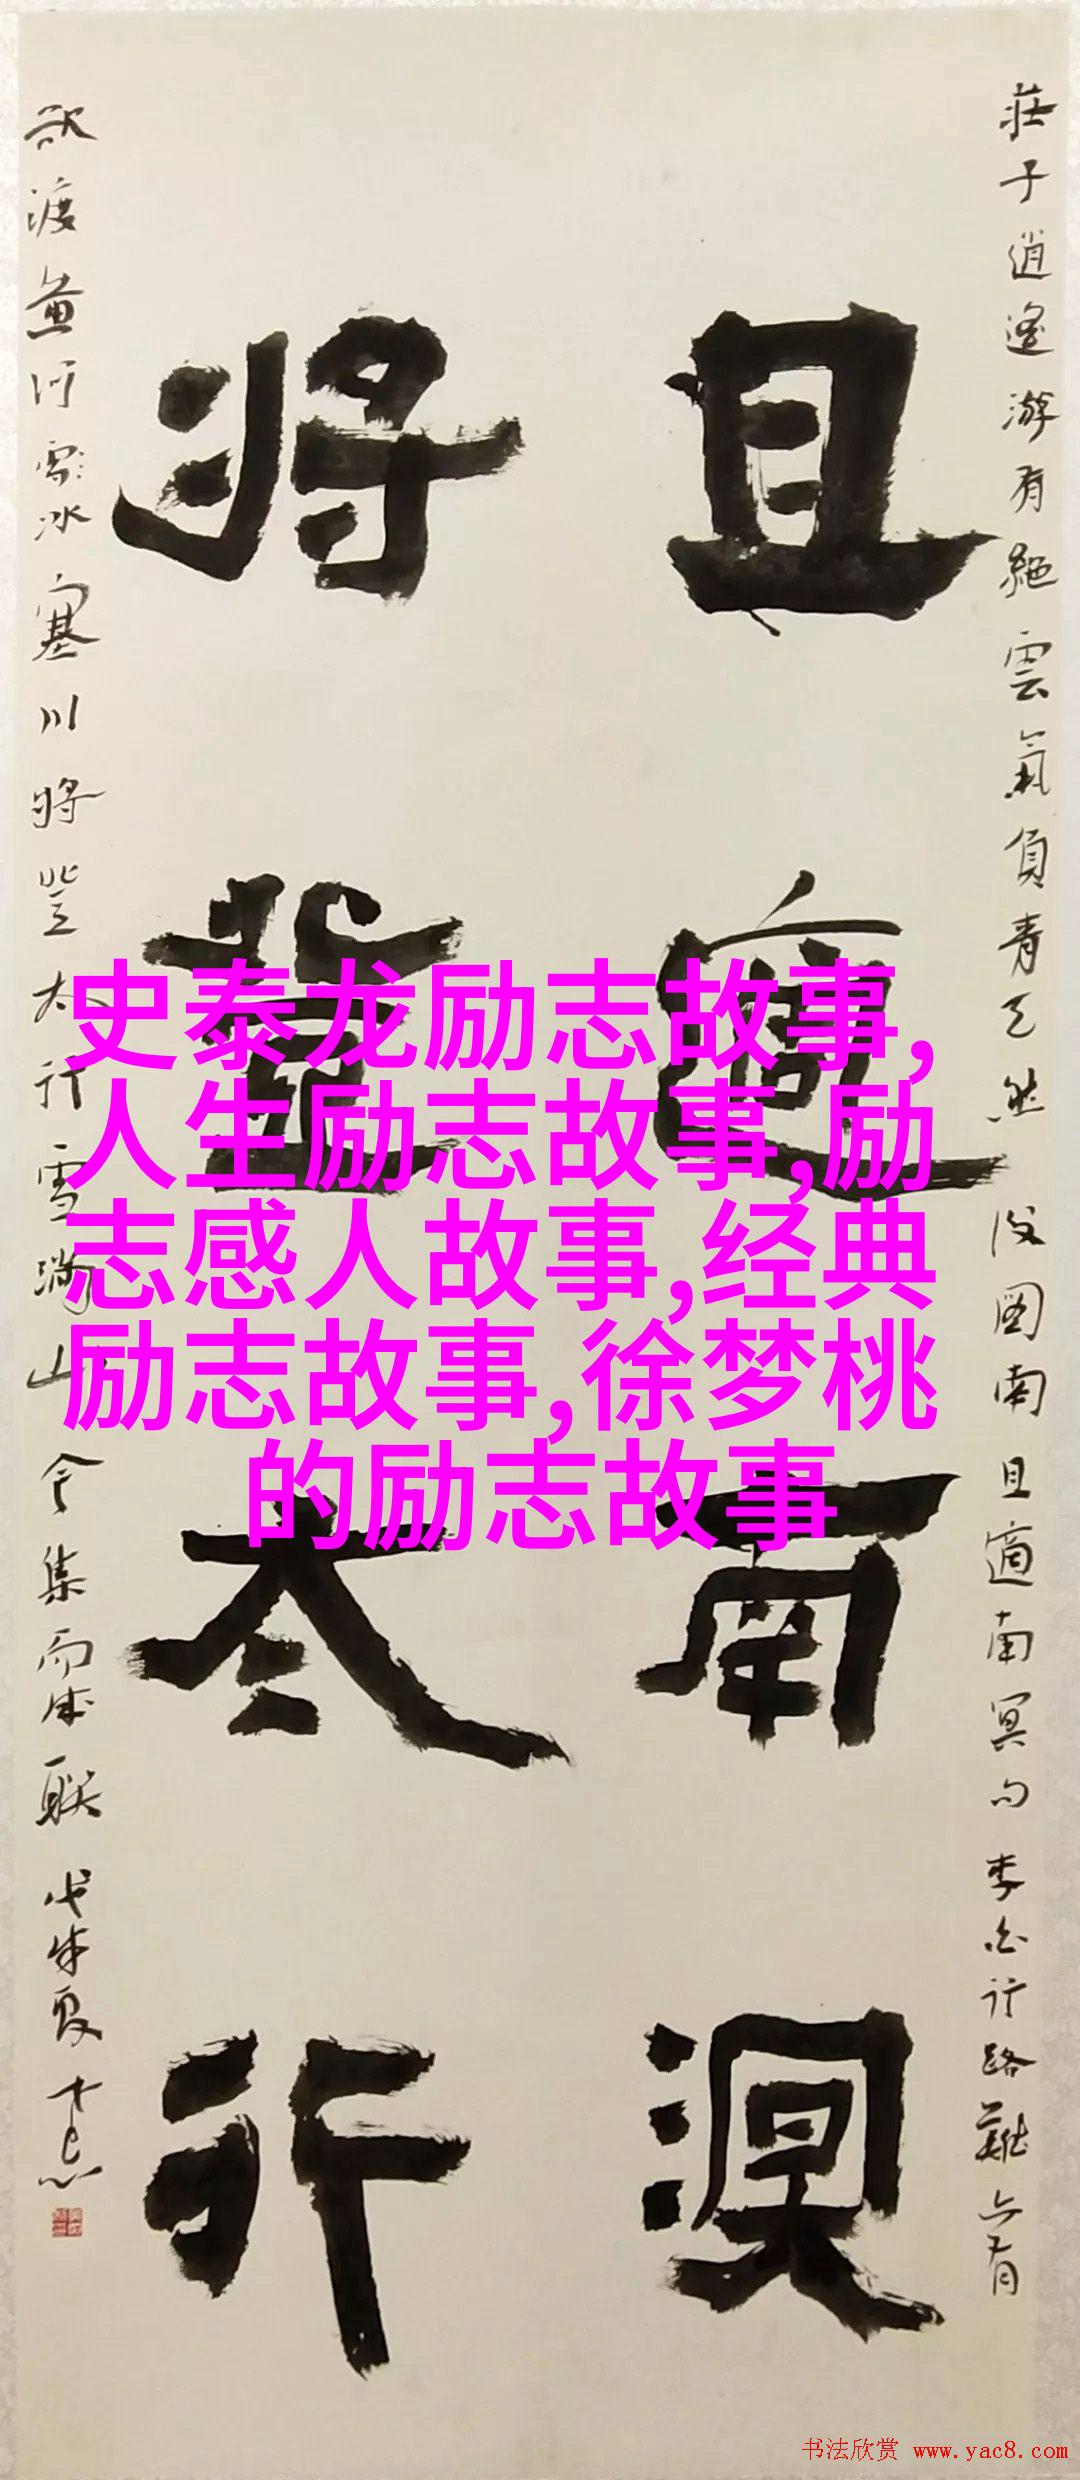 莊子逍遙游有絕雲氣負青天然後圖南且適南冥句李白行路難亦有
且適南溟
將登太行
欲渡黃河冰塞川將登太行雪滿山今集而成聯戊戌夏
史泰龙励志故事,
人生励志故事,励
志感人故事,经典
励志故事,徐梦桃
的励志故事
书法欣赏 www.yac8.com